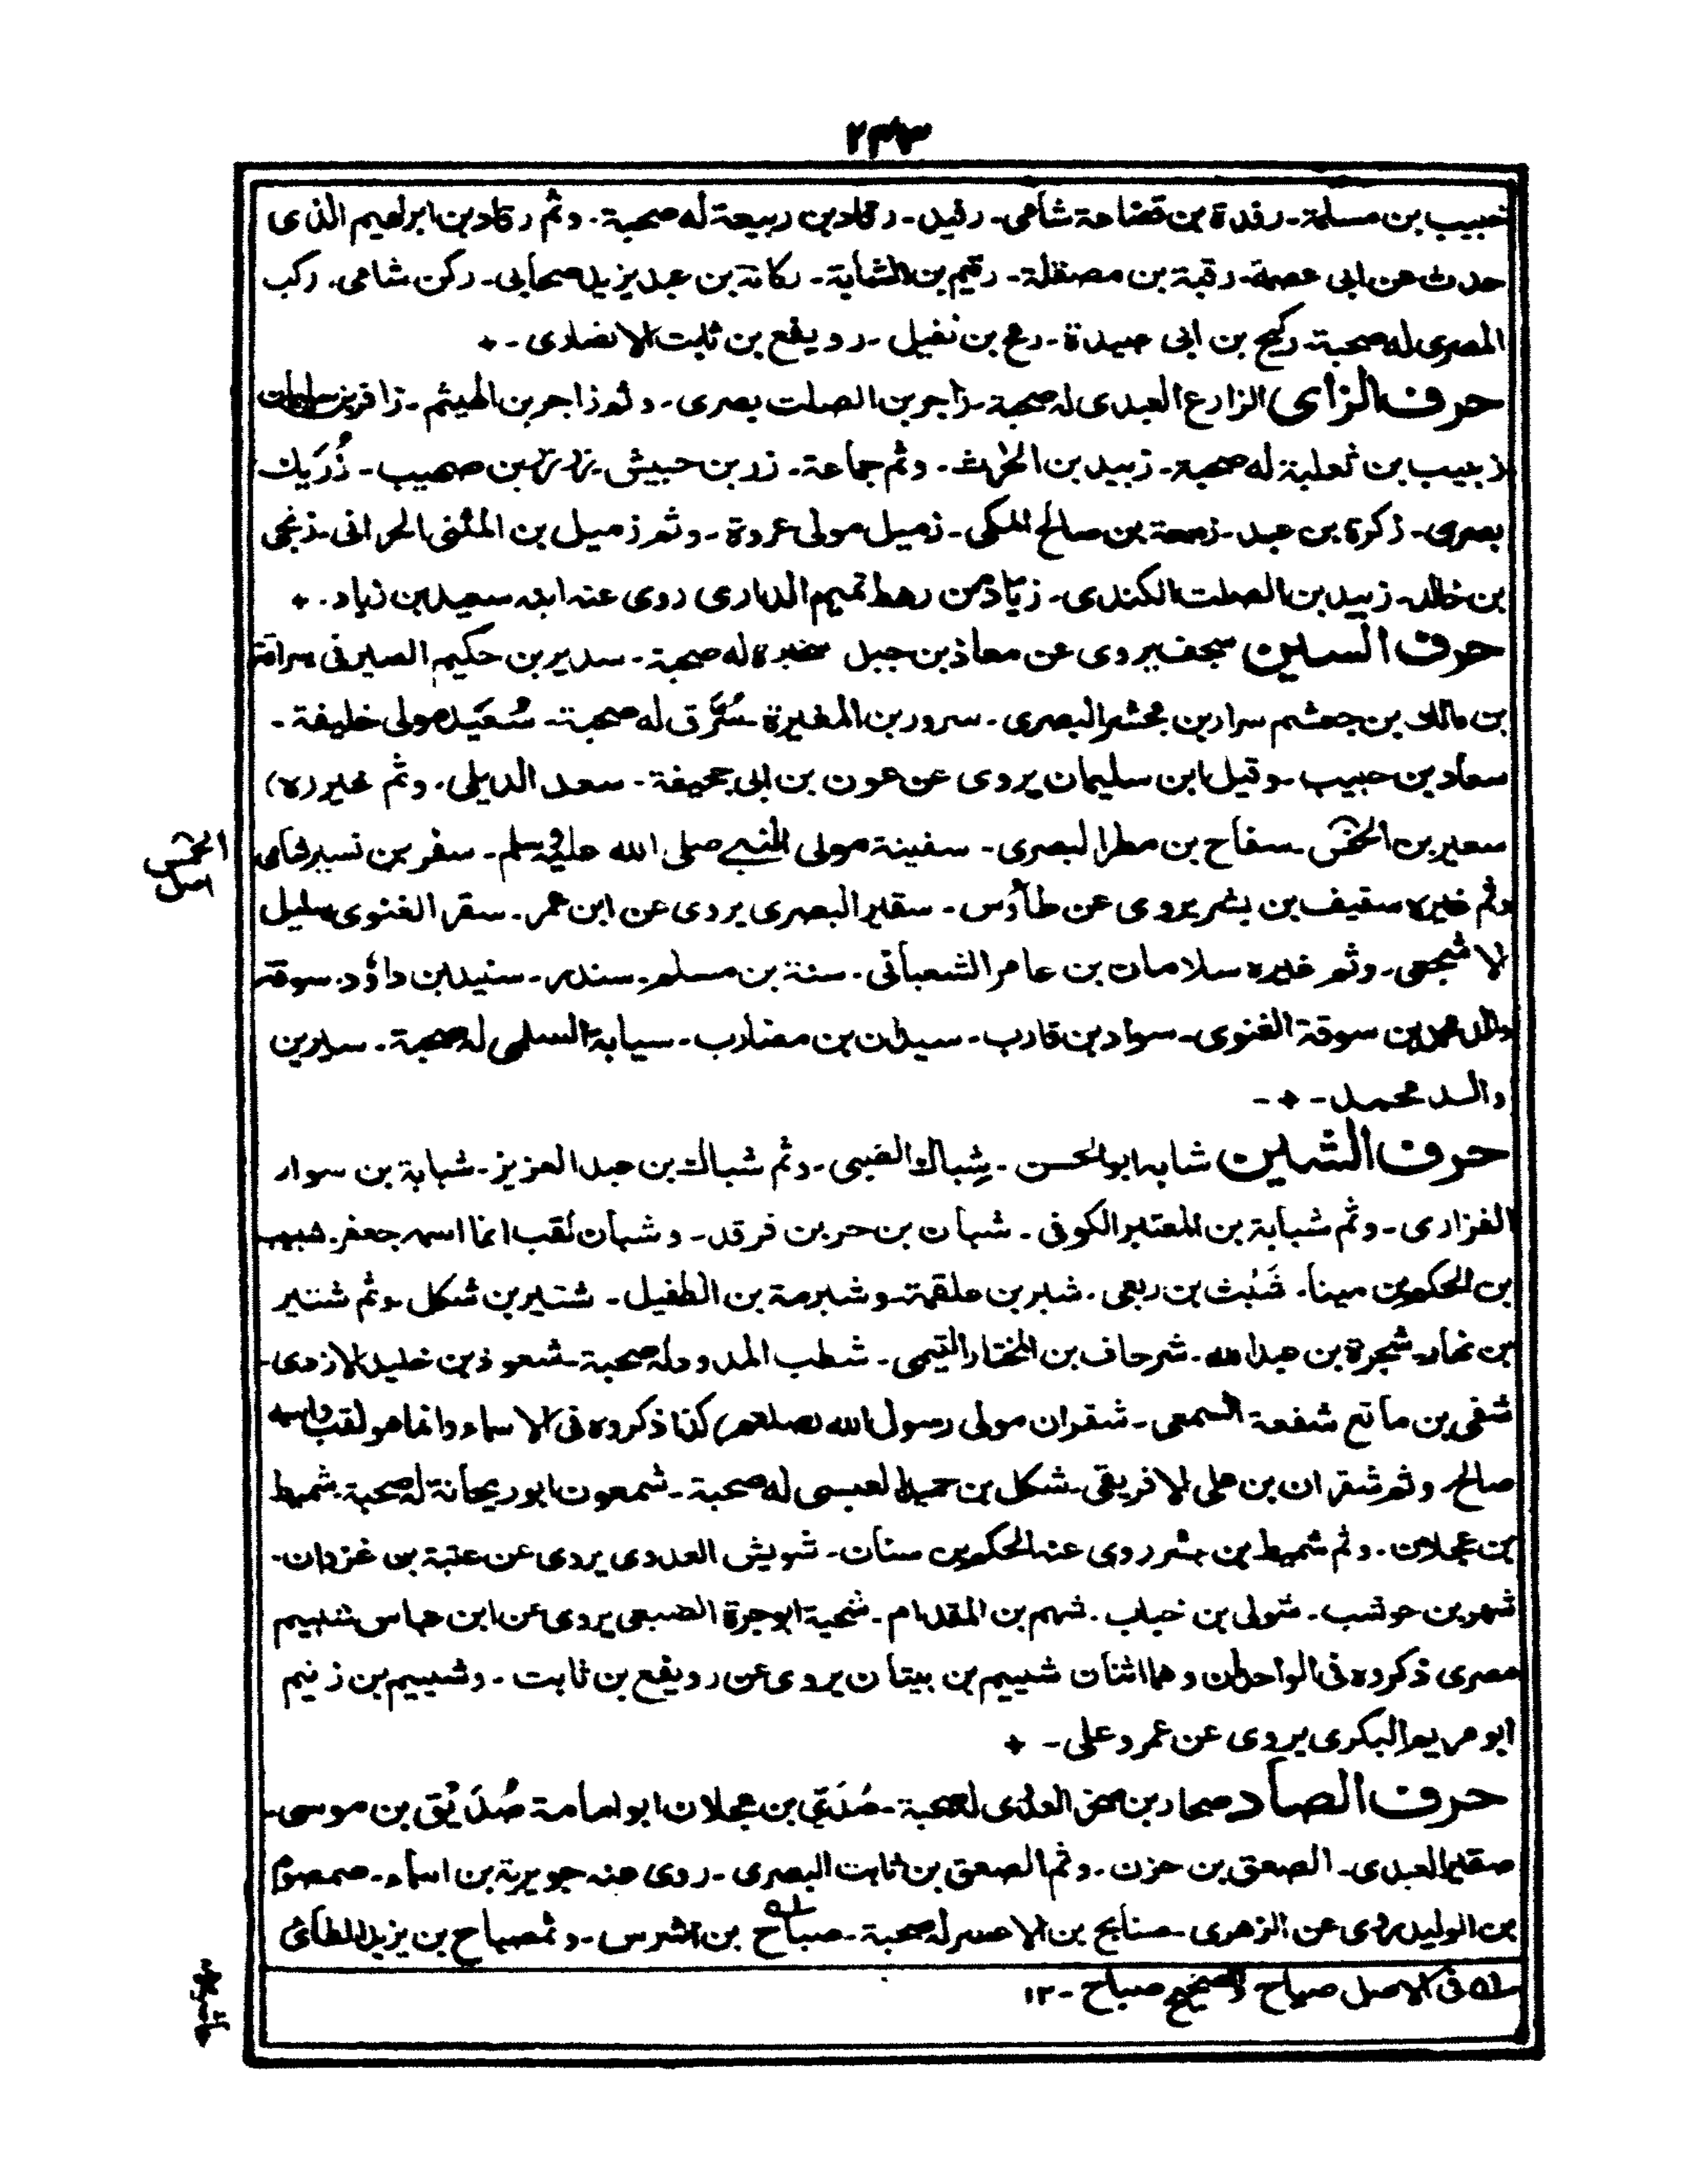 ٢٣٣
حبيب بن مسلمة۔ رفدة بن قضاحة شامى۔ رفيل۔ رقاد بن ربيعة له صحبة۔ وثم رقاد بن ابراهيم الذى
حدث عن ابى عصمة۔ رقبة بن مصقلة۔ رقيم بن الشابة۔ ركانة بن عبد يزيد صحابى۔ ركن شامى۔ ركب
المصرى له صحبة۔ ركيح بن ابى عبيدة۔ رمح بن نفيل۔ رويفع بن ثابت الانصارى۔
حرف الزاى الزارع العبدى له صحبة۔ زاجر بن الصلت بصرى۔ وثم زاجر بن الهيثم۔ زافر بن سليمان
زبيب بن ثعلبة له صحبة۔ زبيد بن الحارث۔ وثم جماعة۔ زر بن حبيش بن صهيب۔ زُرَيك
بصرى۔ زكرة بن عبد۔ زمعة بن صالح المكى۔ زميل مولى عروة۔ وثم زميل بن المثنى الحرانى۔ زنجى
بن خالد۔ زبيد بن الصلت الكندى۔ زياد من رهط تميم الدارى روى عنه ابنه سعيد بن زياد۔
حرف السين سجف يروى عن معاذ بن جبل سخبرة له صحبة۔ سدير بن حكيم الصيرفى سراقة
بن مالك بن جعشم سرار بن مجشر البصرى۔ سرور بن المغيرة۔ سُرَّق له صحبة۔ سُعَيد مولى خليفة۔
سعاد بن حبيب۔ وقيل ابن سليمان يروى عن عون بن ابى جحيفة۔ سعد الديلى۔ وثم غيره
سعير بن الخمس۔ سفاح بن مطر البصرى۔ سفينة مولى النبى صلى الله عليه وسلم۔ سفر بن نسير شامى
الخمس
اصل
وثم غيره سقيف بن بشر يروى عن طاؤس۔ سقير البصرى يروى عن ابن عمر۔ سقر الغنوى سليل
الاشجعى۔ وثم غيره سلامان بن عامر الشعبانى۔ سنة بن مسلم۔ سندر۔ سنيد بن داؤد۔ سوقة
والد محمد بن سوقة الغنوى۔ سواد بن قارب۔ سيدان بن مضارب۔ سيابة السلمى له صحبة۔ سيرين
والد محمد۔
حرف الشين شابه ابو الحسن۔ شِباك الضبى۔ وثم شباك بن عبد العزيز۔ شبابة بن سوار
الفزارى۔ وثم شبابة بن المعتبر الكوفى۔ شبان بن حر بن فرقد۔ وشبان لقب انما اسمه جعفر۔ شبيب
بن الحكم بن مينا۔ شَبَث بن ربعى۔ شبر بن علقمة۔ وشبرمة بن الطفيل۔ شتير بن شكل۔ وثم شتير
بن نهار۔ شجرة بن عبد الله۔ شرحاف بن المختار التيمى۔ شطب الممدود له صحبة۔ شعوذ بن خليد الازدى۔
شفى بن ماتع شفعة السمعى۔ شقران مولى رسول الله (صلعم) كذا ذكروه فى الاسماء وانما هو لقب واسمه
صالح۔ وثم شقران بن على الافريقى۔ شكل بن حميد العبسى له صحبة۔ شمعون ابو ريحانة له صحبة۔ شميط
بن عجلان۔ وثم شميط بن بشر روى عنه الحكم بن سنان۔ شويش العدوى يروى عن عتبة بن غزوان۔
شهر بن حوشب۔ شولى بن خباب۔ شهم بن المقدام۔ شحية ابو جرة الضبعى يروى عن ابن عباس شييم
مصرى ذكروه فى الواحدان وهما اثنان شييم بن بيتان يروى عن رويفع بن ثابت۔ وشييم بن زنيم
ابو مريم البكرى يروى عن عمر وعلى۔
حرف الصاد صحار بن صخر العبدى له صحبة۔ صُدَيّ بن عجلان ابو امامة صُدَيْق بن موسى۔
صقير العبدى۔ الصعق بن حزن۔ وثم الصعق بن ثابت البصرى۔ روى عنه جويرية بن اسماء۔ صمصوم
بن الوليد يروى عن الزهرى۔ صنابح بن الاعسر له صحبة۔ صباح بن اشرس۔ وثم صباح بن يزيد الطائى
له فى الاصل صياح والصحيح صباح۔ ١٢